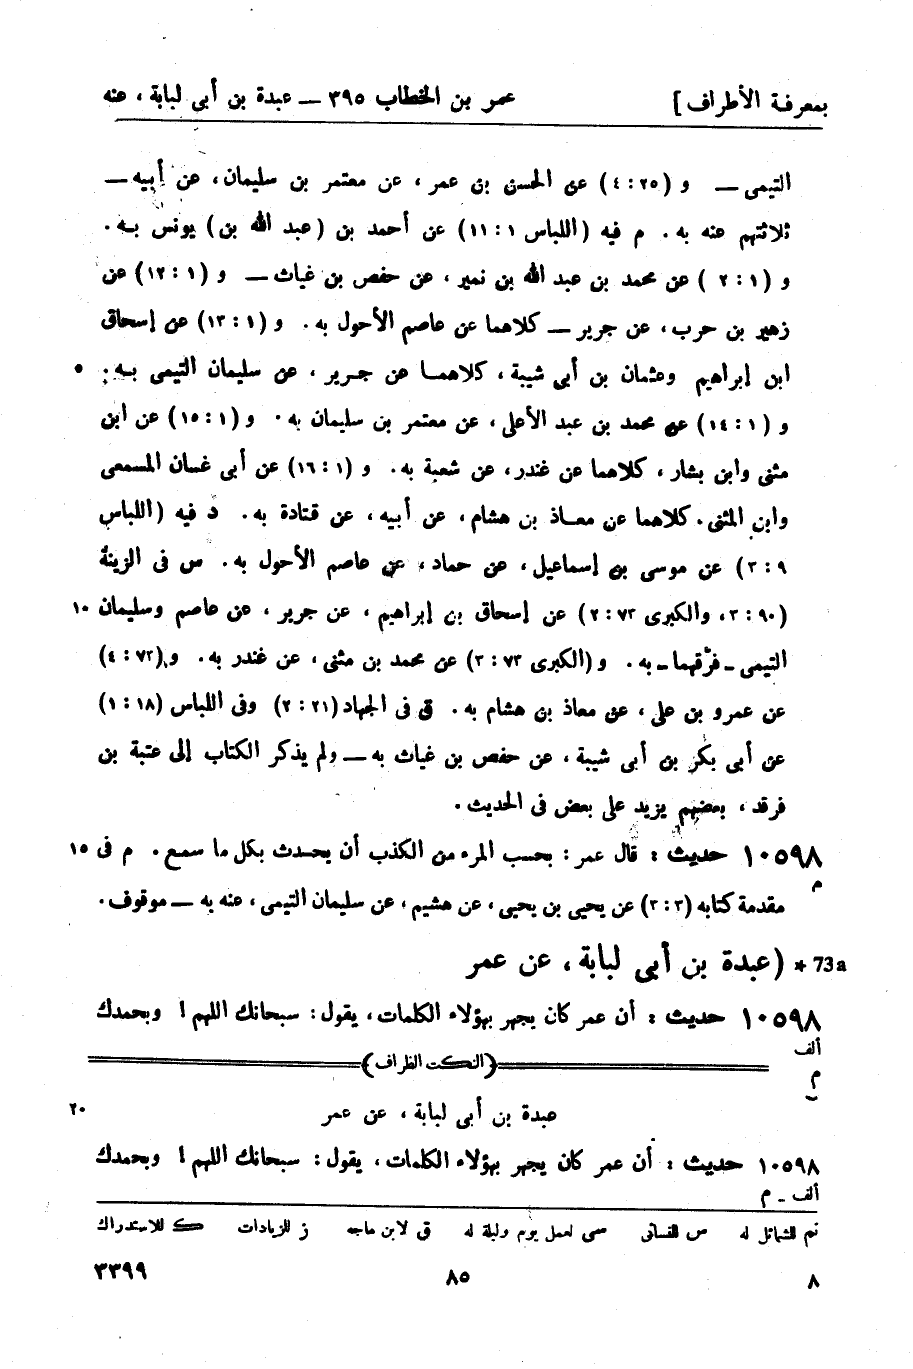 بمعرفة الأطراف] عمر بن الخطاب ٣٩٥ — عبدة بن أبى لبابة، عنه
التيمى — و (٢٥ : ٤) عن الحسن بن عمر، عن معتمر بن سليمان، عن أبيه —
ثلاثتهم عنه به. م فيه (اللباس ١ : ١١) عن أحمد بن (عبد الله بن) يونس به.
و (١ : ٢ ) عن محمد بن عبد الله بن نمير، عن حفص بن غياث — و (١ : ١٢) عن
زهير بن حرب، عن جرير — كلاهما عن عاصم الأحول به. و (١ : ١٣) عن إسحاق
ابن إبراهيم وعثمان بن أبى شيبة، كلاهما عن جرير، عن سليمان التيمى به. ٥
و (١ : ١٤) عن محمد بن عبد الأعلى، عن معتمر بن سليمان به. و (١ : ١٥) عن ابن
مثنى وابن بشار، كلاهما عن غندر، عن شعبة به. و (١ : ١٦) عن أبى غسان المسمعى
وابن المثنى. كلاهما عن معاذ بن هشام، عن أبيه، عن قتادة به. د فيه (اللباس
٩ : ٣) عن موسى بن إسماعيل، عن حماد، عن عاصم الأحول به. س فى الزينة
(٩٠ : ٣، والكبرى ٧٣ : ٢) عن إسحاق بن إبراهيم، عن جرير، عن عاصم وسليمان ١٠
التيمى ـ فرّقهما ـ به. و (الكبرى ٧٣ : ٣) عن محمد بن مثنى، عن غندر به. و (٧٣ : ٤)
عن عمرو بن على، عن معاذ بن هشام به. ق فى الجهاد (٢١ : ٢) وفى اللباس (١٨ : ١)
عن أبى بكر بن أبى شيبة، عن حفص بن غياث به — ولم يذكر الكتاب إلى عتبة بن
فرقد، بعضهم يزيد على بعض فى الحديث.
١٠٥٩٨ حديث : قال عمر : بحسب المرء من الكذب أن يحدث بكل ما سمع. م فى ١٥
م
مقدمة كتابه (٣ : ٣) عن يحيى بن يحيى، عن هشيم، عن سليمان التيمى، عنه به — موقوف.
73a * (عبدة بن أبى لبابة، عن عمر
١٠٥٩٨ حديث : أن عمر كان يجهر بهؤلاء الكلمات، يقول : سبحانك اللهم ! وبحمدك
ألف
م
(النكت الظراف)
عبدة بن أبى لبابة، عن عمر ٢٠
١٠٥٩٨ حديث : أن عمر كان يجهر بهؤلاء الكلمات، يقول : سبحانك اللهم ! وبحمدك
ألف ـ م
تم للشمائل له س للنسائى سى لعمل يوم وليلة له ق لابن ماجه ز للزيادات ك للاستدراك
٨ ٨٥ ٣٣٩٩